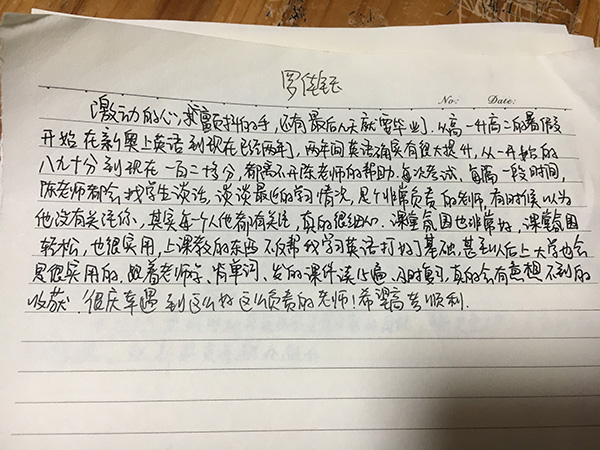 罗佳钰
No: Date:
激动的心,颤抖的手,还有最后几天就要毕业了.从高一升高二的暑假
开始在新奥上英语到现在已经两年了,两年间英语确实有很大提升,从一开始的
八九十分到现在一百二十多分,都离不开陈老师的帮助.每次考试,每隔一段时间,
陈老师都会找学生谈话,谈谈最近的学习情况,是个非常负责的老师,有时候以为
他没有关注你,其实每个人他都有关注,真的很细心.课堂氛围也非常好,课堂氛围
轻松,也很实用,上课教的东西不仅帮我学习英语打好了基础,甚至以后上大学也会
是很实用的.跟着老师走、背单词、发的课件读几遍、及时复习,真的会有意想不到的
收获!很庆幸遇到这么好这么负责的老师!希望高考顺利.